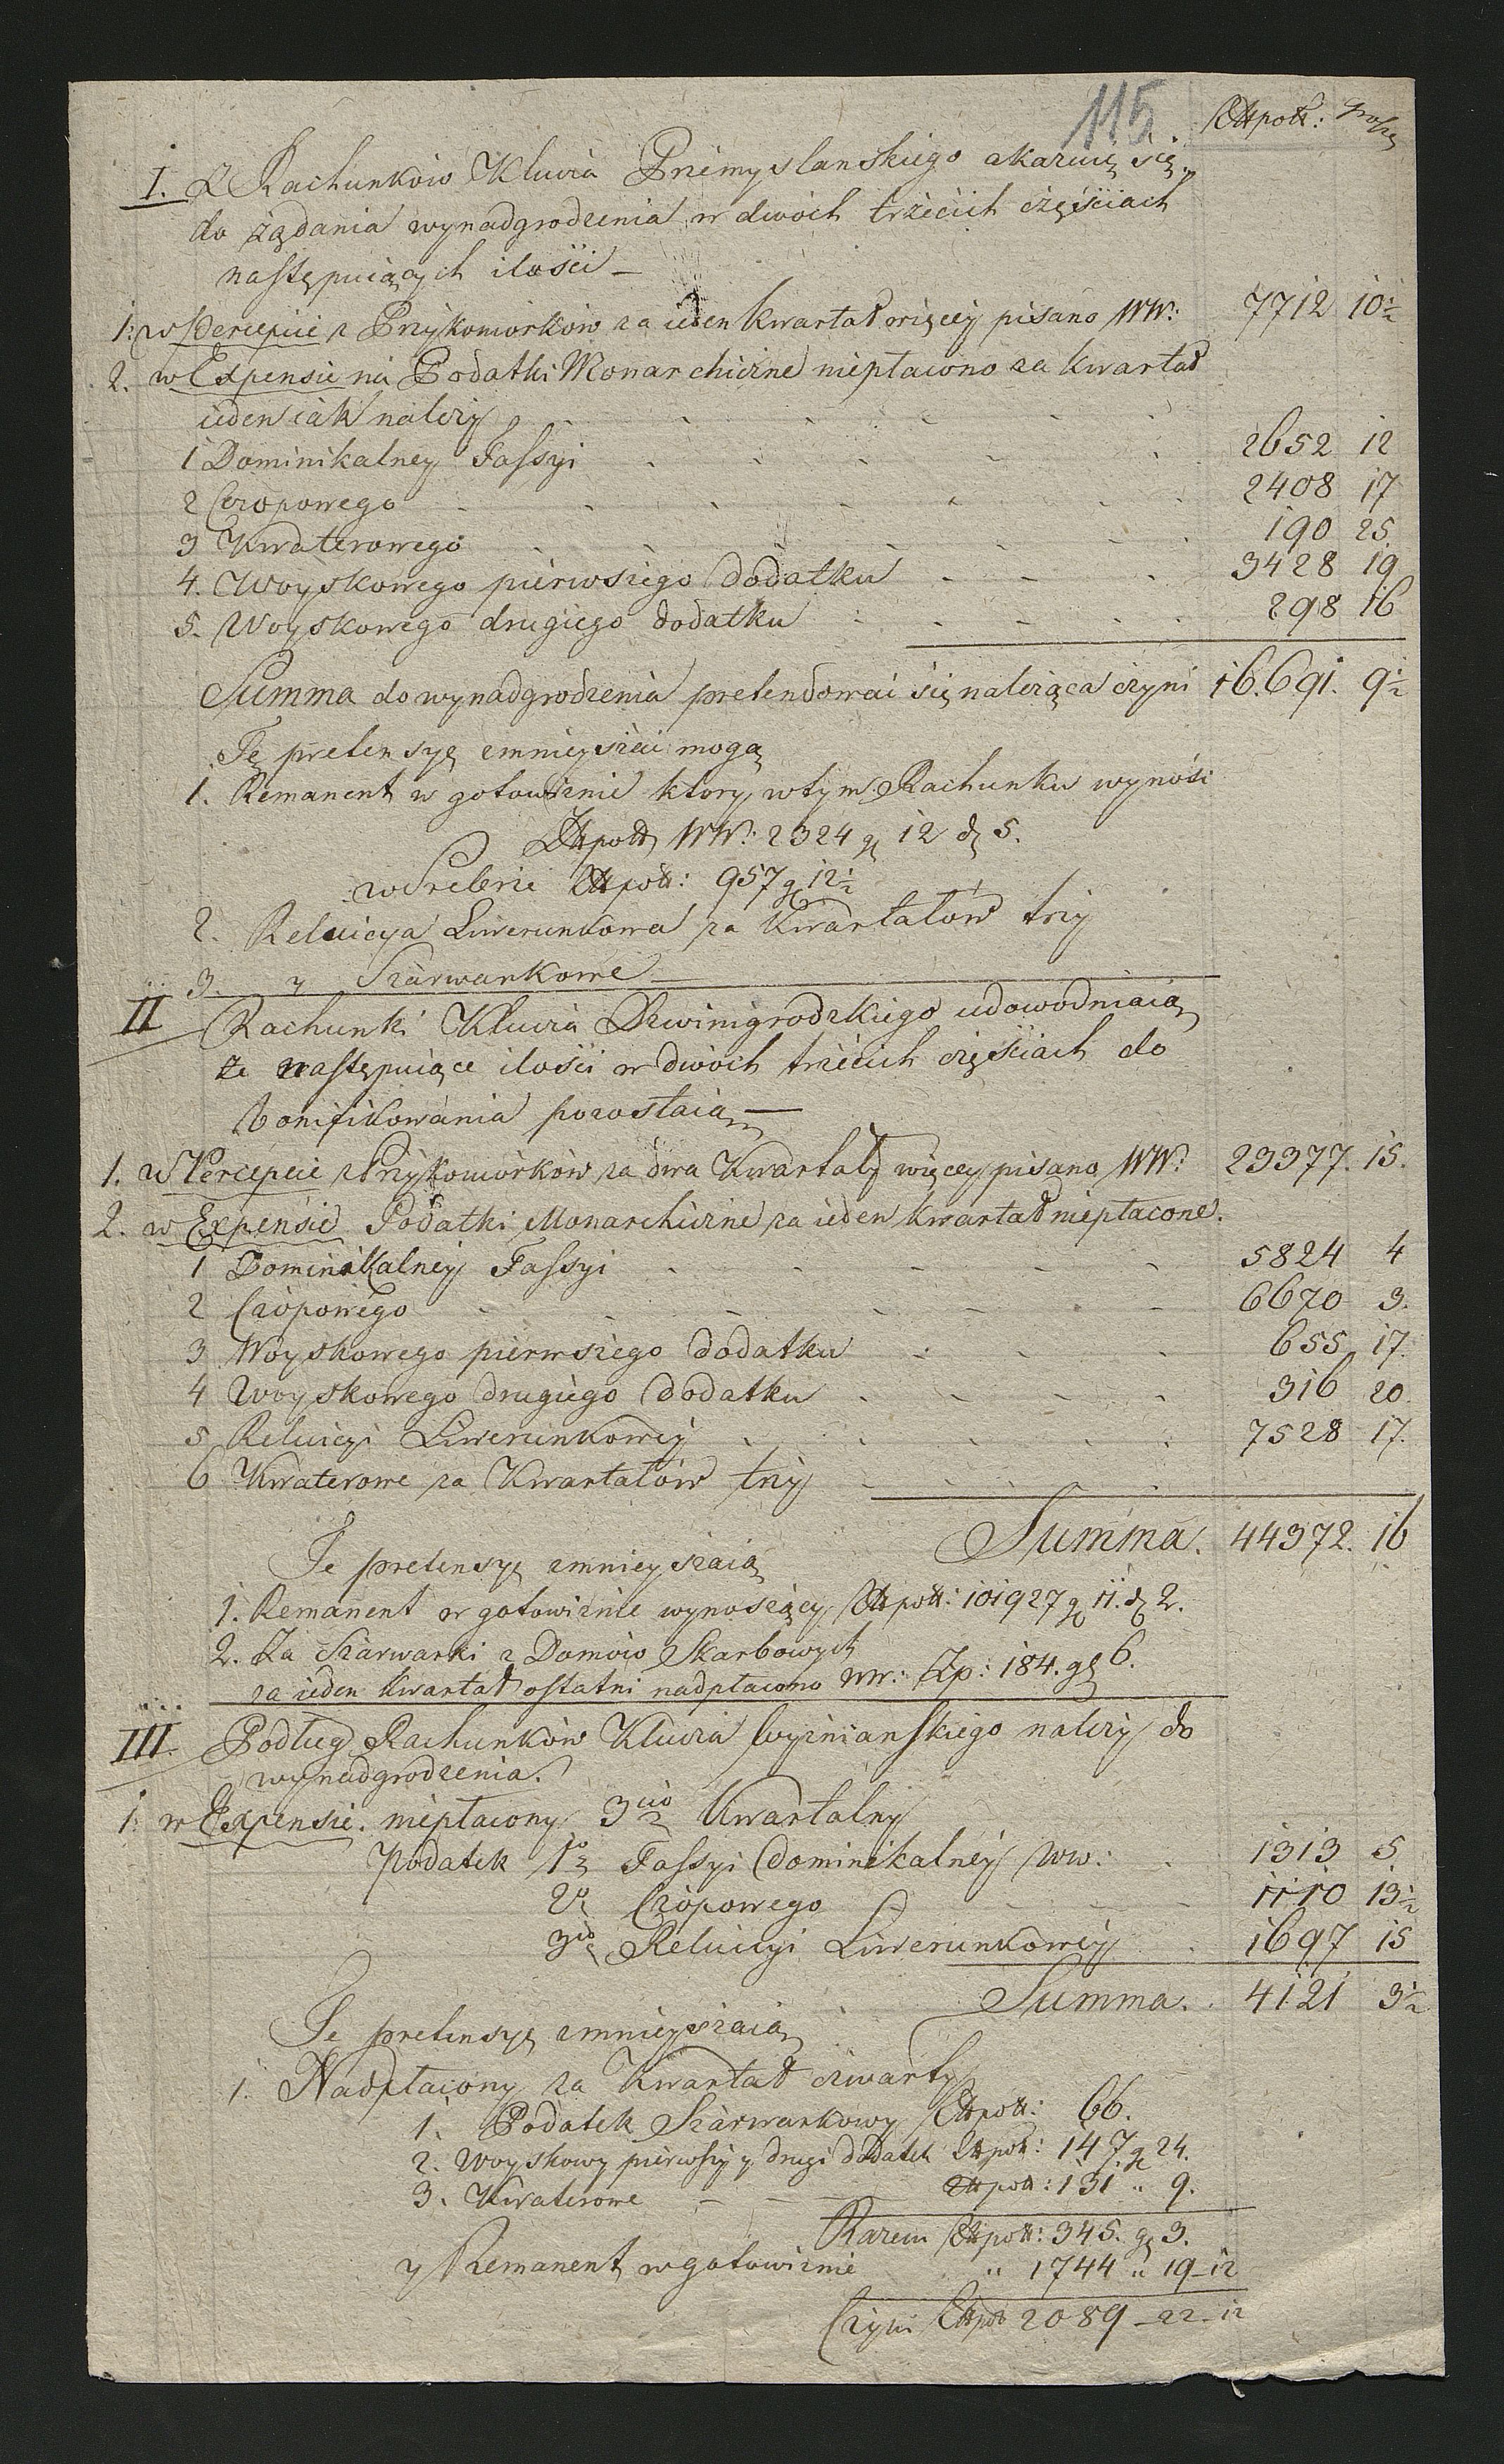 115. Złtpols: Groszy
I. Z Rachunków Klucza Przemyslanskiego okazuię się,
do żądania wynadgrodzenia w dwóch trzecich częściach
następuiących ilości —
1. w Percepcie z Przykomorków za ieden kwartał więcey pisano WW: 7712 10½
2. w Expensie na Podatki Monarchiczne niepłacono za kwartał
ieden iak należy
1 Dominikalney Fassyi 2652 12
2 Czopowego 2408 17
3 Kwaterowego 190 25
4. Woyskowego pierwszego dodatku 3428 19
5. Woyskowego drugiego dodatku 298 16
Summa do wynadgrodzenia pretendować się należąca czyni 16.691. 9½
Tę pretensyę zmnieyszać mogą
1. Remanent w gotowiźnie który w tym Rachunku wynosi
Złtpols WW: 2324 g 12 d 5.
w Srebrze Złtpols: 957 g 12½
2. Reluicya Liwerunkowa za Kwartałów trzy
3. y Szarwarkowe —
II Rachunki Klucza Dzwinigrodzkiego udowodniaią
że następuiące ilości w dwóch trzecich częściach do
bonifikowania pozostaią —
1. w Percepcie z Przykomorków za dwa Kwartały więcey pisano WW: 23377. 15.
2. w Expensie Podatki Monarchiczne za ieden kwartał niepłacone.
1 Dominikalney Fassyi 5824 4
2 Czopowego 6670 3.
3 Woyskowego pierwszego dodatku 655 17.
4 Woyskowego drugiego dodatku 316 20.
5 Reluicyi Liwerunkowey 7528 17.
6 Kwaterowe za Kwartałów trzy
Summa. 44372. 16
Te pretensyę zmnieyszaią
1. Remanent w gotowiźnie wynoszący Złtpols: 101927 g 11. d 2.
2. Za Szarwarki z Domów Skarbowych
za ieden kwartał ostatni nadpłacono WW: Zp: 184. g 6.
III. Podług Rachunków Klucza Wyżnianskiego należy do
wynadgrodzenia.
1. w Expensie. niepłacony 3cio Kwartalny
Podatek 1o Fassyi Dominikalney WW: 1313 5
2o Czopowego 1110 13½
3io Reluicyi Liwerunkowey 1697 15
Summa. 4121 3½
Te pretensyę zmnieyszaią
1. Nadpłacony za Kwartał czwarty
1. Podatek Szarwarkowy Złtpols: 66.
2. Woyskowy pierwszy y drugi dodatek Złtpols: 147 g 24.
3. Kwaterowe — Złtpols: 131 „ 9.
Razem Złtpols: 345. g 3.
y Remanent w gotowiźnie „ 1744 „ 19-12
Czyni Złtpols 2089 - 22 - 12